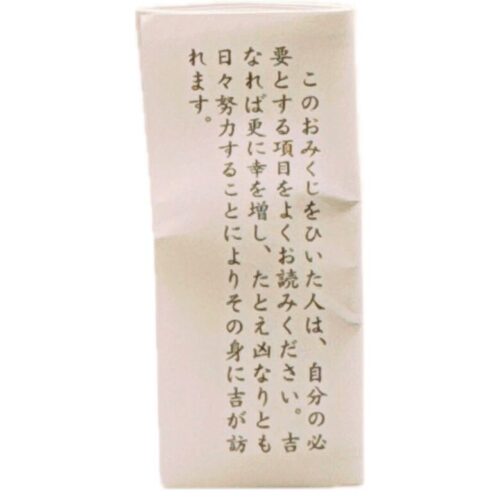 このおみくじをひいた人は、自分の必
要とする項目をよくお読みください。吉
なれば更に幸を増し、たとえ凶なりとも
日々努力することによりその身に吉が訪
れます。